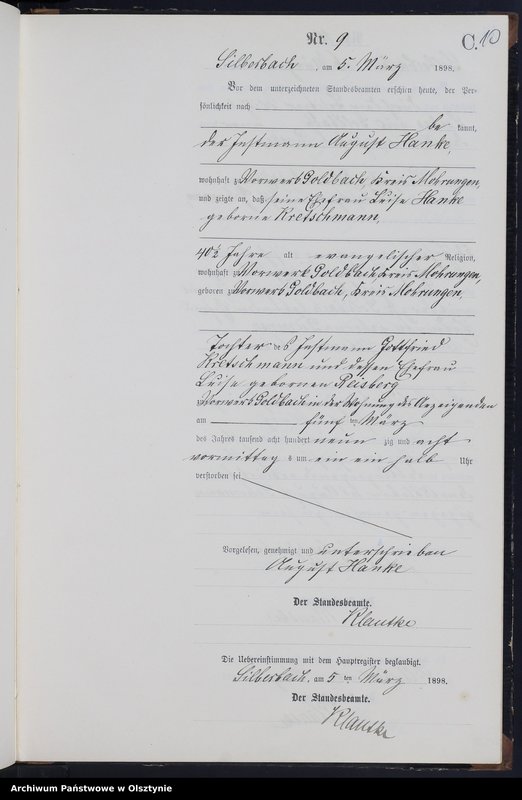 Nr. 9
C. 10
Silberbach, am 5. März 1898.
Vor dem unterzeichneten Standesbeamten erschien heute, der Per-
sönlichkeit nach
be kannt,
der Instmann August Hanke,
wohnhaft zu Vorwerk Goldbach, Kreis Mohrungen,
und zeigte an, daß seine Ehefrau Luise Hanke
geborne Kretschmann,
40½ Jahre alt evangelischer Religion,
wohnhaft zu Vorwerk Goldbach, Kreis Mohrungen,
geboren zu Vorwerk Goldbach, Kreis Mohrungen,
Tochter des Instmann Gottfried
Kretschmann und dessen Ehefrau
Luise gebornen Reisberg
Vorwerk Goldbach in der Wohnung des Anzeigenden
am fünf ten März
des Jahres tausend acht hundert neun zig und acht
vormittag s um ein ein halb Uhr
verstorben sei.
Vorgelesen, genehmigt und unterschrieben
August Hanke
Der Standesbeamte.
Klautke
Die Uebereinstimmung mit dem Hauptregister beglaubigt.
Silberbach, am 5 ten März 1898.
Der Standesbeamte.
Klautke
Archiwum Państwowe w Olsztynie